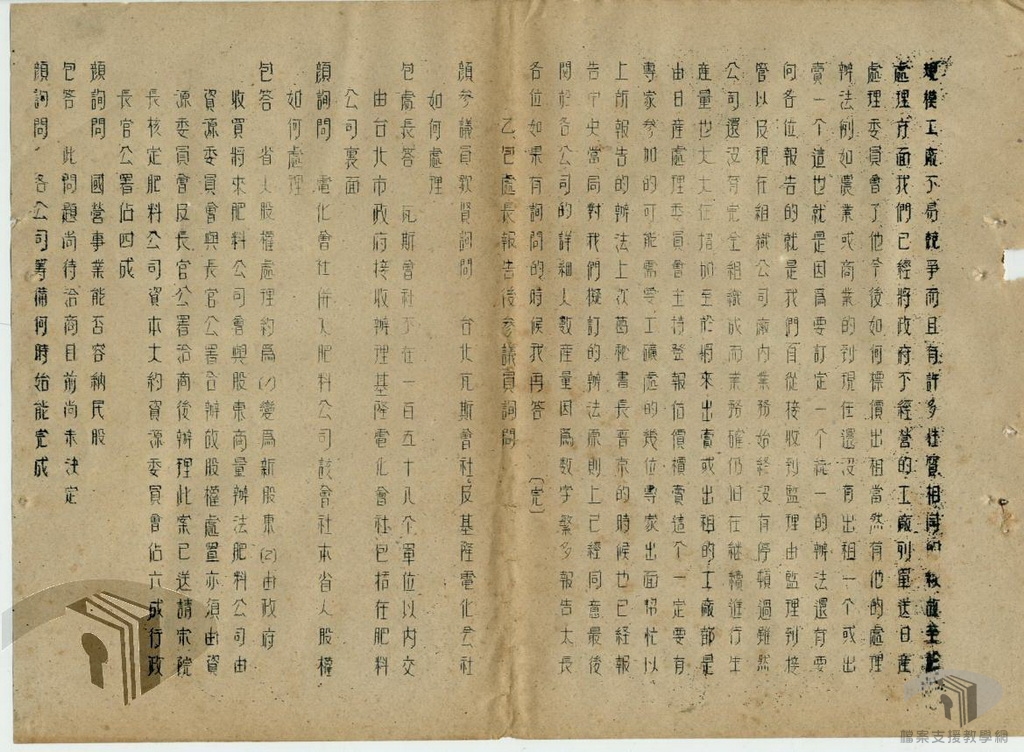 規模工廠不易競爭而且有許多性質相同
處理方面我們已經將政府不經營的工廠列單送日產
處理委員會了他今後如何標價出租當然有他的處理
辦法例如農業或商業的到現在還没有出租一个或出
賣一个這也就是因爲要訂定一个統一的辦法還有要
向各位報告的就是我們自從接收到監理由監理到接
管以及現在組織公司廠内業務始終没有停頓過雖然
公司還没有完全組織成而業務確仍旧在継續進行生
產量也大大在増加至於將來出賣或出租的工廠都是
由日產處理委員會主持登報估價標賣這个一定要有
專家参加的可能需要工礦處的幾位專家出面帮忙以
上所報告的辦法上次葛秘書長晋京的時候也已経報
告中央當局對我們擬訂的辦法原則上已經同意最後
関於各公司的詳細人数産量因爲数字繁多報告太長
各位如果有詢問的時候我再答 〔完〕
乙、包處長報告後參議員詢問
顔参議員欽賢詢問 台北瓦斯會社及基隆電化会社
如何處理
包處長答 瓦斯會社不在一百五十八个單位以内交
由台北市政府接收辦理基隆電化會社包括在肥料
公司裏面
顔詢問 電化會社併入肥料公司該會社本省人股權
如何處理
包答 省人股權處理約爲(1)變爲新股東(2)由政府
收買將來肥料公司會與股東商量辦法肥料公司由
資源委員會與長官公署合辦故股權處置亦須由資
源委員會及長官公署洽商後辦理此案已送請宋院
長核定肥料公司資本大約資源委員會佔六成行政
長官公署佔四成
顔詢問 國營事業能否容納民股
包答 此問題尚待洽商目前尚未決定
顔詢問 各公司籌備何時始能完成
檔案支援教學網